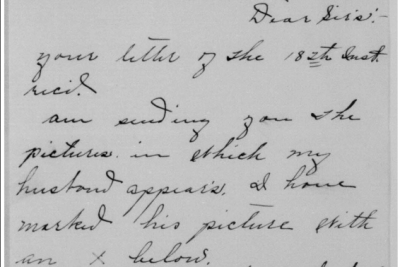 Dear Sirs:-
your letter of the 18th Inst.
rec'd.
am sending you the
pictures in which my
husband appears. I have
marked his picture with
an X below.